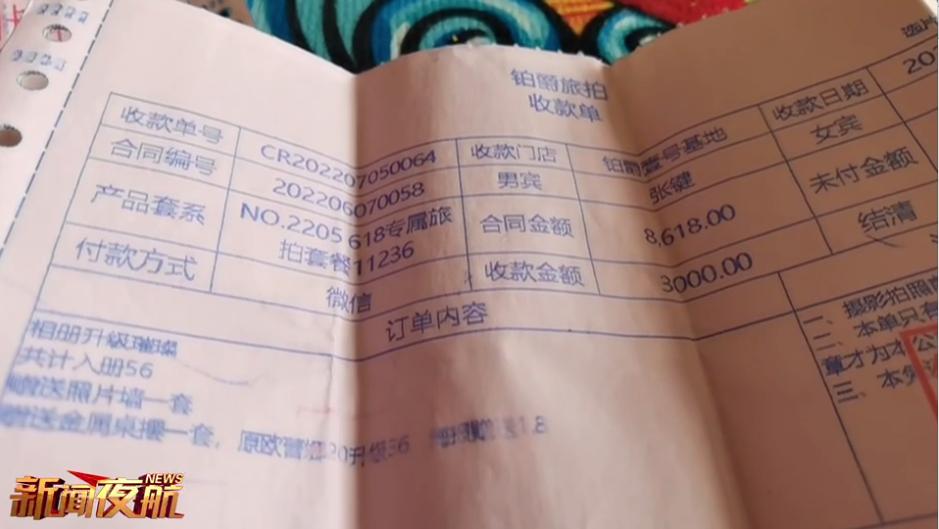 铂爵旅拍
收款单
选片
收款单号 CR202207050064 收款门店 铂爵壹号基地 收款日期 202
合同编号 202206070058 男宾 张健 女宾
产品套系 NO.2205 618专属旅拍套餐11236 合同金额 8,618.00 未付金额
付款方式 微信 收款金额 3000.00 结清
订单内容
相册升级璀璨
共计入册56
赠送照片墙一套
赠送金属桌摆一套,
一、摄影拍照
二、本单只有
章才为本公
三、本
新闻夜航
NEWS